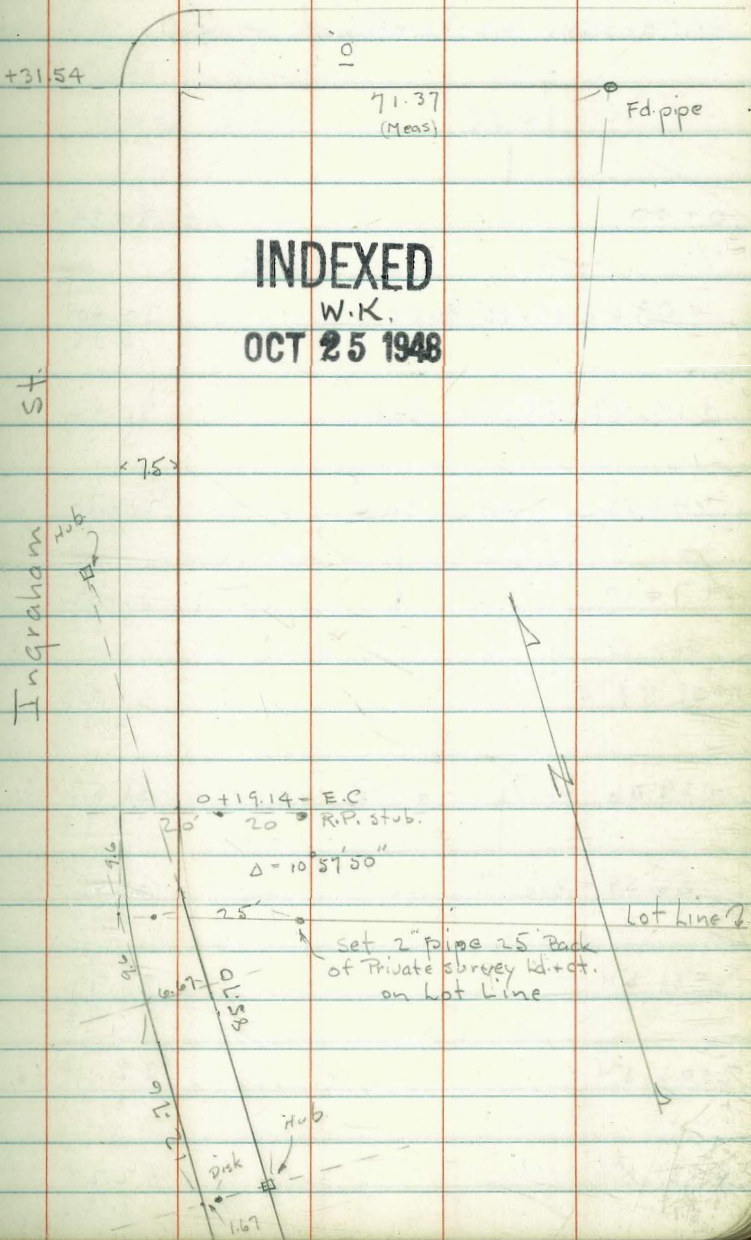 +31.54
71.37
(Meas)
Fd. pipe
INDEXED
W.K.
OCT 25 1948
Ingraham St.
7.5
Hub
0+19.14 = E.C.
20' 20 R.P. stub.
Δ = 10°57'50"
9.6
25'
Lot Line
set 2" pipe 25' Back
of Private survey Ld.+ct.
on Lot Line
9.6
6.67
Hub
Disk
1.67